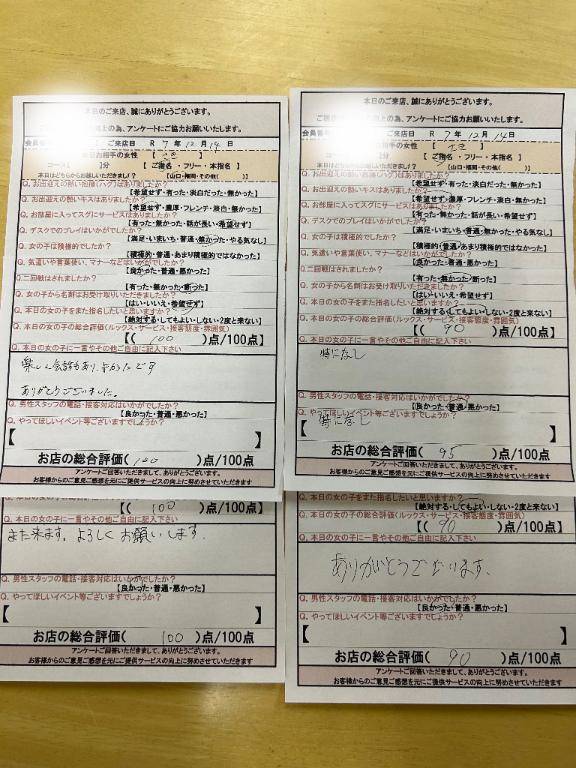 本日のご来店、誠にありがとうございます。
上の為、アンケートにご協力お願いいたします。
会員番号 ご来店日 R 7年 12月 14日
お相手の女性【
コース【 】分 【ご指名・フリー・本指名】
本日はどちらからお越しいただきましたか?【山口・福岡・その他( )】
Q. お出迎えの熱い抱擁(ハグ)はありましたか?
【希望せず・有った・淡白だった・無かった】
Q. お出迎えの熱いキスはありましたか?
【希望せず・濃厚・フレンチ・淡白・無かった】
Q. お部屋に入ってスグにサービスはありましたか?
【有った・無かった・話が長い・希望せず】
Q. デスケでのプレイはいかがでしたか?
【満足・いまいち・普通・無かった・やる気なし】
Q. 女の子は積極的でしたか?
【積極的・普通・あまり積極的ではなかった】
Q. 気遣いや言葉使い、マナーなどはいかがでしたか?
【良かった・普通・悪かった】
Q.二回戦はされましたか?
【有った・無かった・断った】
Q. 女の子から名刺はお受け取りいただきましたか?
【はい・いいえ・希望せず】
Q. 本日の女の子をまた指名したいと思いますか?
【絶対する・してもよい・しない・2度と来ない】
Q. 本日の女の子の総合評価(ルックス・サービス・接客態度・雰囲気)
【( 100 )点/100点】
Q. 本日の女の子に一言やその他ご自由に記入下さい
楽しい会話もあり、よかったです
ありがとうございました。
Q. 男性スタッフの電話・接客対応はいかがでしたか?
【良かった・普通・悪かった】
Q. やってほしいイベント等ございますでしょうか?
【 】
お店の総合評価( 100 )点/100点
アンケートご回答いただきまして、ありがとうございます。
お客様からのご意見ご感想を元にご提供サービスの向上に努めさせていただきます
本日のご来店、誠にありがとうございます。
上の為、アンケートにご協力お願いいたします。
会員番号 ご来店日 R 7年 12月 14日
お相手の女性【
】分 【ご指名・フリー・本指名】
本日はどちらからお越しいただきましたか?【山口・福岡・その他( )】
Q. お出迎えの熱い抱擁(ハグ)はありましたか?
【希望せず・有った・淡白だった・無かった】
Q. お出迎えの熱いキスはありましたか?
【希望せず・濃厚・フレンチ・淡白・無かった】
Q. お部屋に入ってスグにサービスはありましたか?
【有った・無かった・話が長い・希望せず】
Q. デスケでのプレイはいかがでしたか?
【満足・いまいち・普通・無かった・やる気なし】
Q. 女の子は積極的でしたか?
【積極的・普通・あまり積極的ではなかった】
Q. 気遣いや言葉使い、マナーなどはいかがでしたか?
【良かった・普通・悪かった】
Q.二回戦はされましたか?
【有った・無かった・断った】
Q. 女の子から名刺はお受け取りいただきましたか?
【はい・いいえ・希望せず】
Q. 本日の女の子をまた指名したいと思いますか?
【絶対する・してもよい・しない・2度と来ない】
Q. 本日の女の子の総合評価(ルックス・サービス・接客態度・雰囲気)
【( 90 )点/100点】
Q. 本日の女の子に一言やその他ご自由に記入下さい
特になし
Q. 男性スタッフの電話・接客対応はいかがでしたか?
【良かった・普通・悪かった】
Q. やってほしいイベント等ございますでしょうか?
【 特になし 】
お店の総合評価( 95 )点/100点
アンケートご回答いただきまして、ありがとうございます。
お客様からのご意見ご感想を元にご提供サービスの向上に努めさせていただきます
【( 100 )点/100点】
Q. 本日の女の子に一言やその他ご自由に記入下さい
また来ます。よろしくお願いします。
Q. 男性スタッフの電話・接客対応はいかがでしたか?
【良かった・普通・悪かった】
Q. やってほしいイベント等ございますでしょうか?
【 】
お店の総合評価( 100 )点/100点
アンケートご回答いただきまして、ありがとうございます。
お客様からのご意見ご感想を元にご提供サービスの向上に努めさせていただきます
Q. 本日の女の子をまた指名したいと思いますか?
【絶対する・してもよい・しない・2度と来ない】
Q. 本日の女の子の総合評価(ルックス・サービス・接客態度・雰囲気)
【( 90 )点/100点】
Q. 本日の女の子に一言やその他ご自由に記入下さい
ありがとうございます。
Q. 男性スタッフの電話・接客対応はいかがでしたか?
【良かった・普通・悪かった】
Q. やってほしいイベント等ございますでしょうか?
【 】
お店の総合評価( 90 )点/100点
アンケートご回答いただきまして、ありがとうございます。
お客様からのご意見ご感想を元にご提供サービスの向上に努めさせていただきます